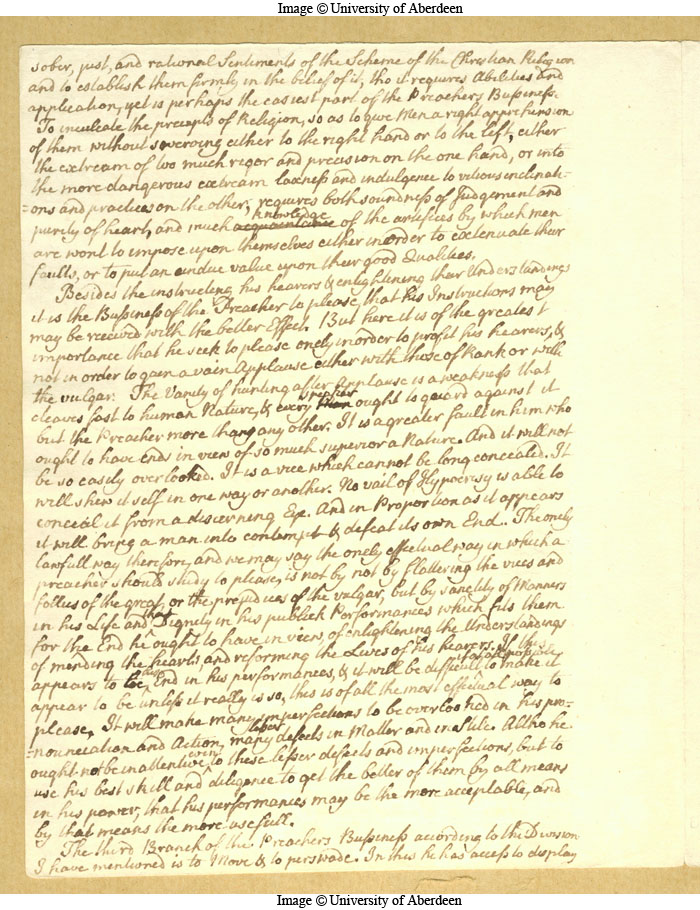 Image © University of Aberdeen
sober, just, and rational Sentiments of the Scheme of the Christian Religion
and to establish them firmly in the belief of it, tho it requires Abilities and
application, yet is perhaps the easiest part of the Preachers Bussiness.
To inculcate the precepts of Religion, so as to give Men a right apprehension
of them without swerving either to the right hand or to the left, either
the extream of too much rigor and precision on the one hand, or into
the more dangerous extream laxness and indulgence to vitious inclinati-
=ons and practices on the other, requires both soundness of Judgement and
knowledge
purity of heart, and much acquaintance of the artifices by which men
are wont to impose upon themselves either in order to extenuate their
faults, or to put an undue value upon their good Qualities.
Besides the instructing his hearers & enlightning their Understandings
it is the Bussiness of the Preacher to please, that his Instructions may
may be received with the better Effect. But here it is of the greatest
importance that he seek to please onely in order to profit his hearers, &
not in order to gain a vain Applause either with those of Rank or with
the vulgar. The Vanity of hunting after Applause is a weakness that
cleaves fast to human Nature, & every ought is guard against it
but the Preacher more than any other. It is a greater fault in him who
ought to have Ends in view of so much superior a Nature. And it will not
be so easily overlooked. It is a vice which cannot be long concealed. It
will shew it self in one way or another. No vail of Hypocrisy is able to
conceal it from a discerning Eye. And in Proportion as it appears
it will bring a man into contempt & defeat its own End. The onely
lawfull way therefore, and we may say the onely effectual way in which a
preacher should study to please, is not by not by flattering the vices and
follies of the great, or the prejudices of the vulgar, but by sanctity of Manners
that
in his Life and Dignity in his publick Performances which fits them
for the End he ought to have in view, of enlightening the Understandings
of mending the hearts and reforming the Lives of his hearers. If this
appears to be End in his performances, & it will be difficult to make it
appear to be unless it really is so, this is of all the most effectual way to
please. It will make many imperfections to be overlooked in his pro-
lesser
=nounciation and Action, many defects in Matter and in Stile. Altho he
even
ought not be inattentive to these lesser defects and imperfections, but to
use his best skill and diligence to get the better of them by all means
in his power, that his performances may be the more acceptable, and
by that means the more usefull.
The third Branch of the Preachers Bussiness according to the Division
I have mentioned is to Move & to perswade. In this he has access to display
Image © University of Aberdeen